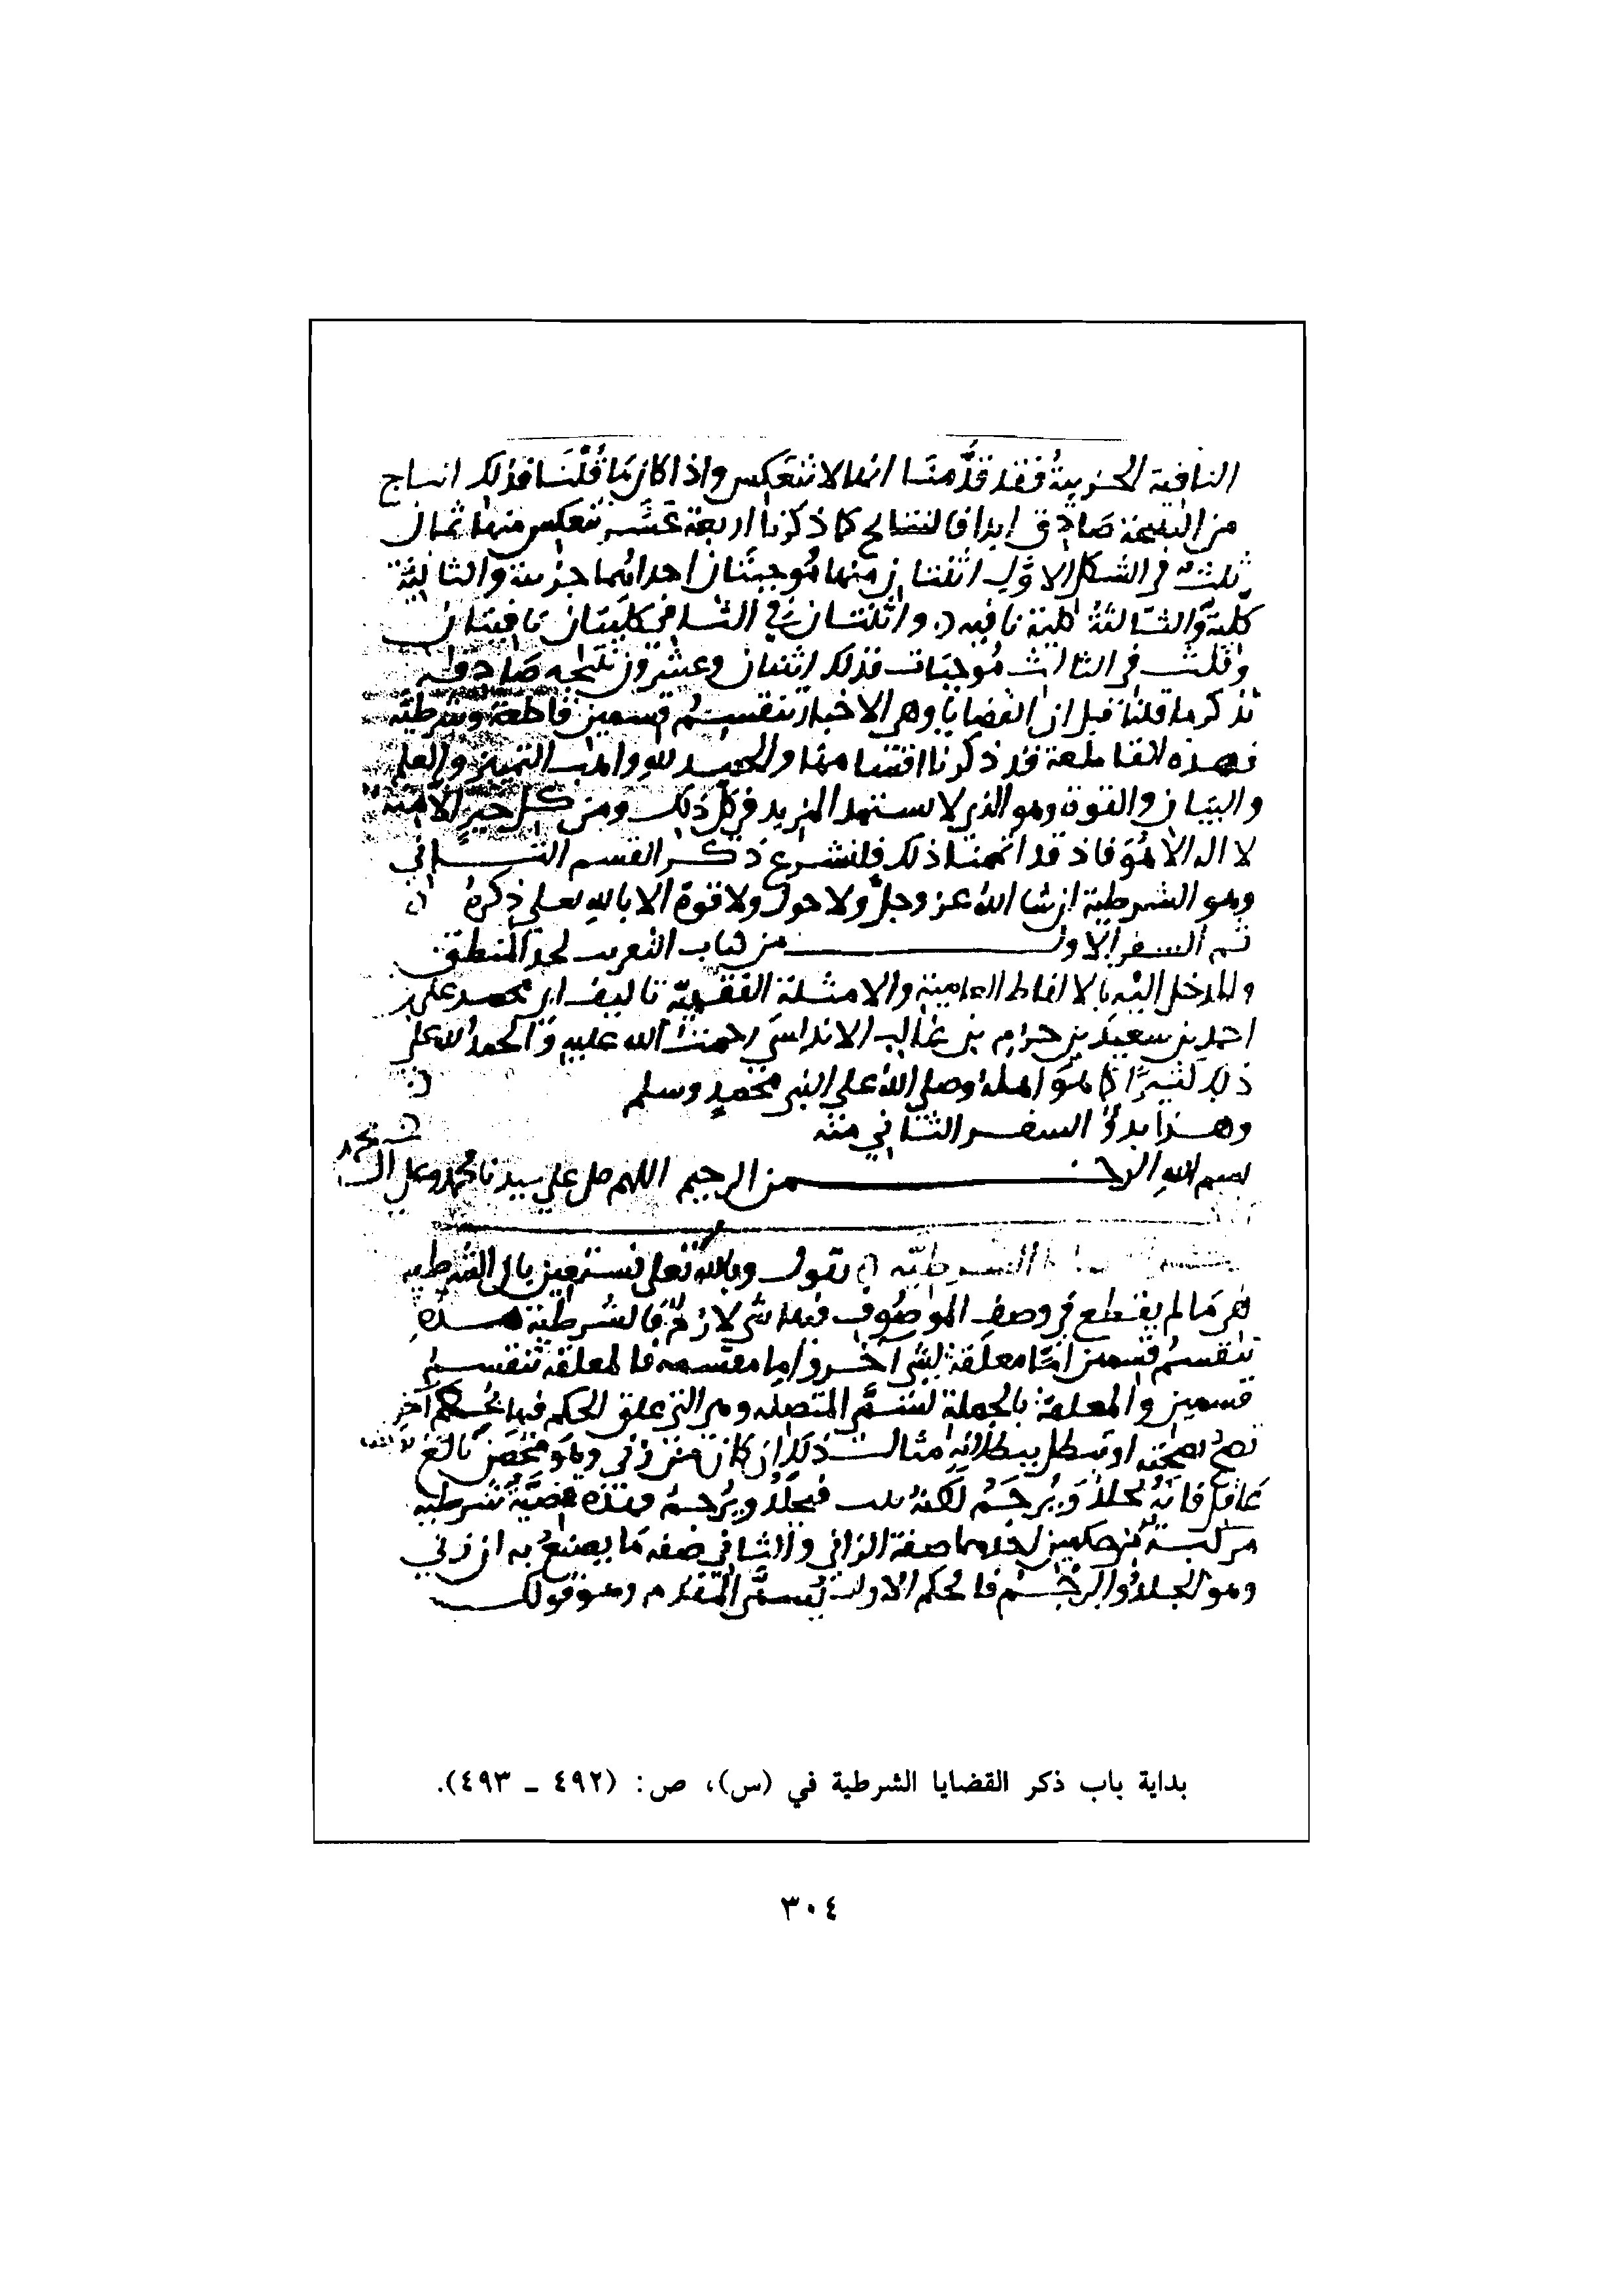 النافية الجزيية فقد قدمنا انها لا تنعكس واذا كان ما قلنا فذلك انتاج
من النتيجة صادق ابدا فالنتائج كما ذكرنا اربعة عشر تنعكس منها ثمان
ثلث في الشكل الاول اثنتان منها موجبتان احداهما جزيية والثانية
كلية والثالثة كلية نافية واثنتان في الثاني كليتان نافيتان
وثلث في الثالث موجبات فذلك اثنتان وعشرون نتيجه صادقة
تذكر ما قلنا قبل ان القضايا وهي الاخبار تنقسم قسمين قاطعة وشرطية
فهذه القاطعة قد ذكرنا اقسامها والحمد لله واهب التمييز والعلم
والبيان والقوة وهو الذي لا يستمد المزيد في كل ذلك ومن كل خير الا منه
لا اله الا هو فاذ قد اتممنا ذلك فلنشرع ذكر القسم الثاني
وهو الشرطية ان شا الله عز وجل ولا حول ولا قوة الا بالله تعلى ذكره
تم السفر الاول من كتاب التقريب لحد المنطق
والمدخل اليه بالالفاظ العامية والامثلة الفقهية تاليف ابي محمد علي بن
احمد بن سعيد بن حزم بن غالب الاندلسي رحمت الله عليه والحمد لله على
ذلك كثيرا كما هو اهله وصلى الله على النبي محمد وسلم
وهذا بدؤ السفر الثاني منه
بسم الله الرحمن الرحيم اللهم صل على سيدنا محمد وعلى ال محمد
الشرطية نقول وبالله تعلى نستعين بان الشرطية
هي ما لم يقطع في وصف الموصوف فيها شي لازم فالشرطية هذه
تنقسم قسمين اما معلقة بشي اخر واما مقسمه فالمعلقة تنقسم
قسمين والمعلقة بالجملة تسمى المتصله وهي التي علق الحكم فيها بحكم اخر
تصح بصحته او تبطل ببطلانه مثال ذلك ان كان من زنى وهو محصن بالغ
عاقل فانه يجلد ويرجم لكنه فيجلد ويرجم فهذه قضية شرطية
مركبة من حكمين احدهما صفة الزاني والثاني صفه ما يصنع به ان زنى
وهو الجلد والرجم فالحكم الاول يسمى المقدم وهو قولك
بداية باب ذكر القضايا الشرطية في (س)، ص: (٤٩٢ ـ ٤٩٣).
٣٠٤